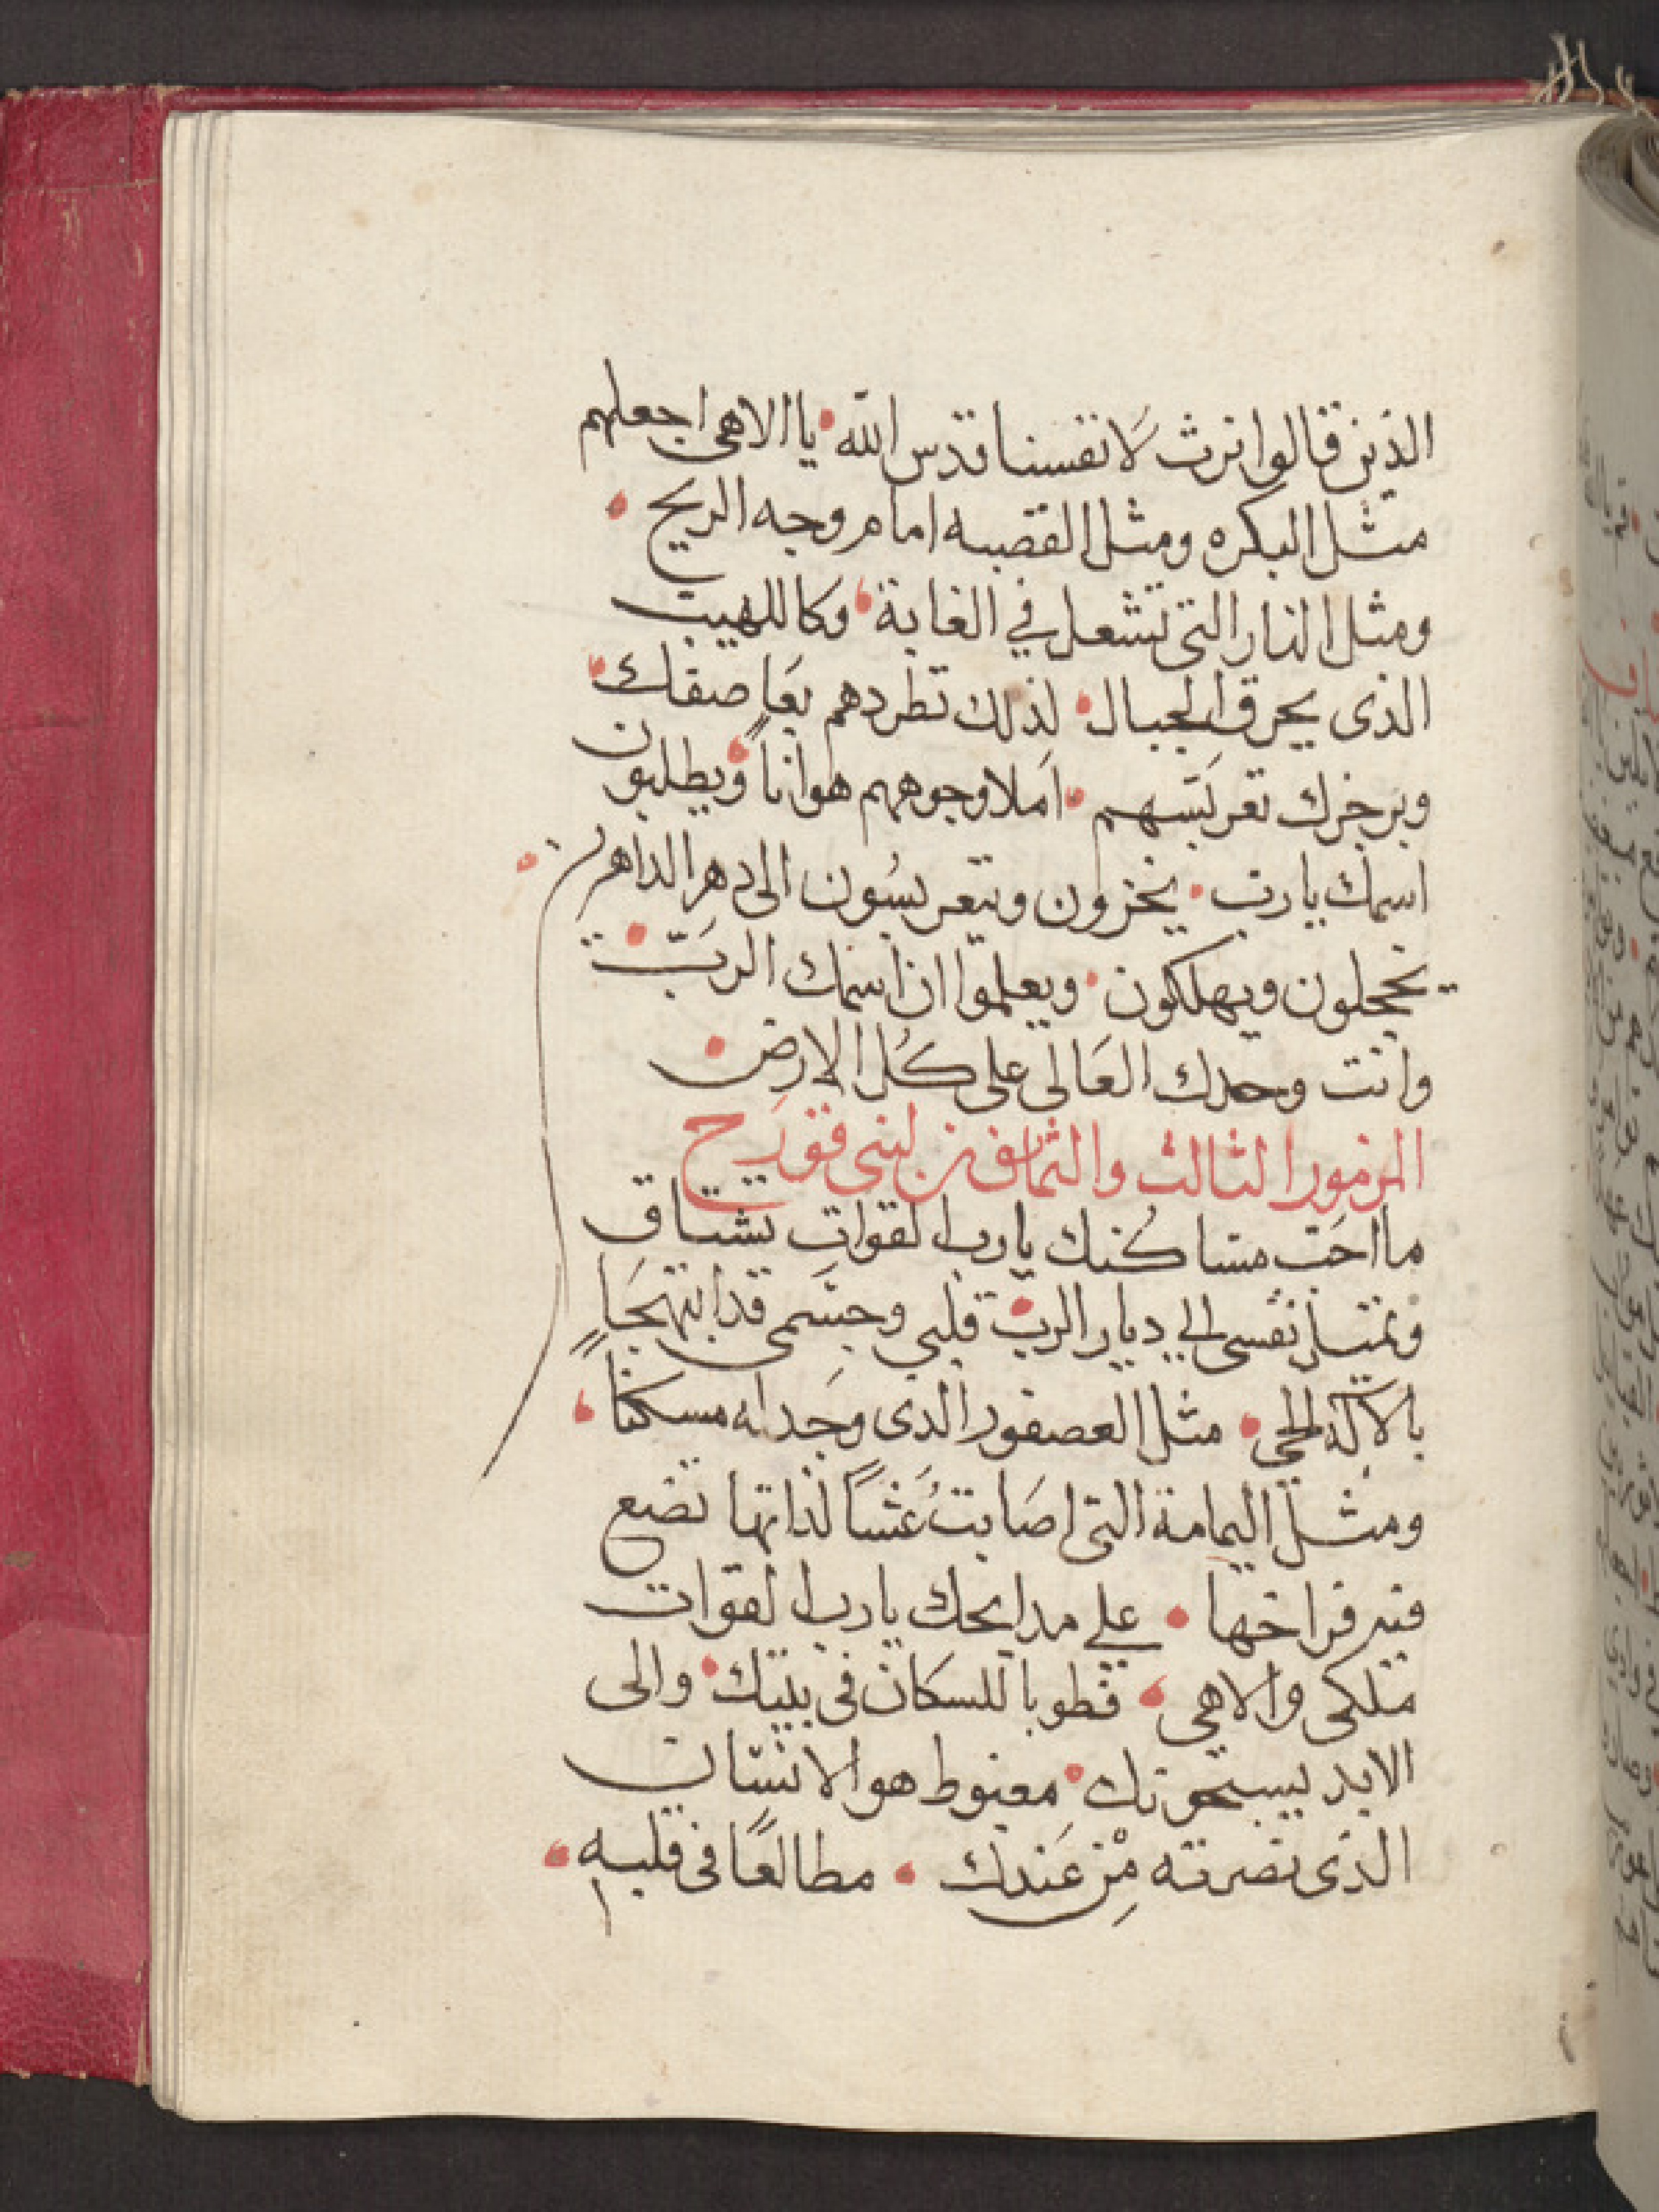 الذين قالوا نرث لانفسنا قدس الله • يا الاهى اجعلهم
مثل البكره ومثل القصبه امام وجه الريح •
ومثل النار التى تشعل في الغابة • وكاللهيب
الذى يحرق الجبال • لذلك تطردهم بعاصفك •
وبرجزك تعربسهم • املا وجوههم هواناً • ويطلبون
اسمك يا رب • يخزون ويتعربسون الى دهر الداهرين •
يخجلون ويهلكون • ويعلموا ان اسمك الربّ •
وانت وحدك العالى على كل الارض •
المزمور الثالث والثمانون لبنى قورح
ما احب مساكنك يا رب القوات تشتاق
نفسى الي ديار الرب • قلبي وجسمى قد ابتهجا
بالاله الحي • مثل العصفور الذى وجد له مسكناً •
ومثل اليمامة التى اصابت عشاً لذاتها تضع
فيه فراخها • على مدابحك يا رب القوات
ملكى والاهي • فطوبا للسكان فى بيتك • والى
الابد يسبحونك • مغبوط هو الانسان
الذى نصرته من عندك • مطالعاً فى قلبه •